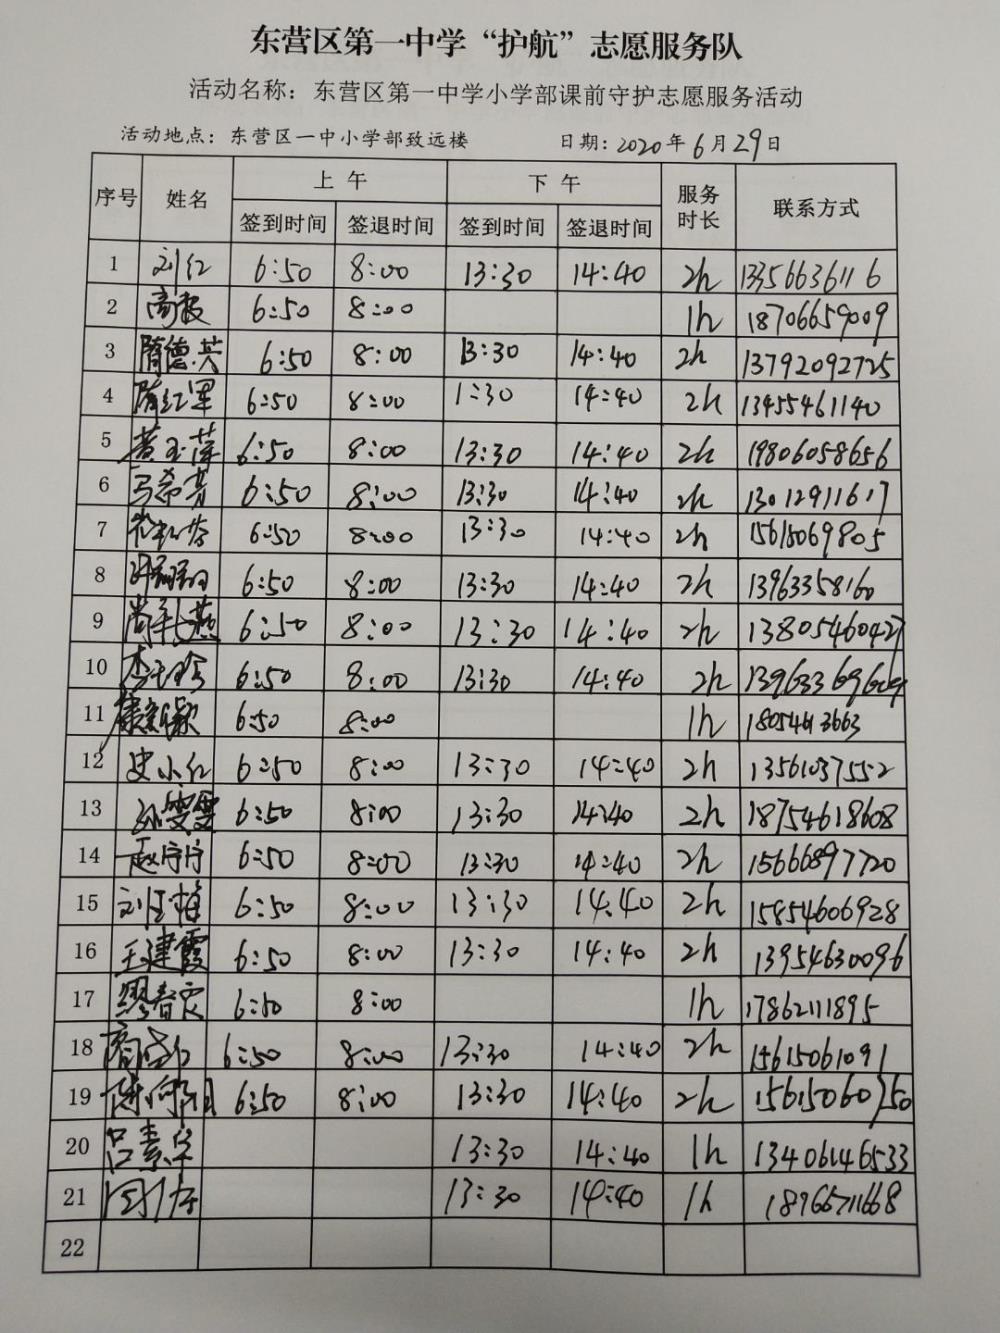 东营区第一中学“护航”志愿服务队
活动名称：东营区第一中学小学部课前守护志愿服务活动
活动地点：东营区一中小学部致远楼 日期：2020年6月29日
序号 姓名 上午 下午 服务时长 联系方式
签到时间 签退时间 签到时间 签退时间
1 刘红 6:50 8:00 13:30 14:40 2h 13356636116
2 6:50 8:00 1h 18706659009
3 隋德兵 6:50 8:00 13:30 14:40 2h 13792092725
4 隋红军 6:50 8:00 1:30 14:40 2h 13455461140
5 黄玉萍 6:50 8:00 13:30 14:40 2h 19806058656
6 马希芳 6:50 8:00 13:30 14:40 2h 13012911617
7 6:50 8:00 13:30 14:40 2h 15615069805
8 6:50 8:00 13:30 14:40 2h 13963358160
9 6:50 8:00 13:30 14:40 2h 13805460427
10 6:50 8:00 13:30 14:40 2h
11 6:50 8:00 1h 18054613663
12 史小红 6:50 8:00 13:30 14:40 2h 13561037552
13 孙雯雯 6:50 8:00 13:30 14:40 2h 18754618608
14 赵宁宁 6:50 8:00 13:30 14:40 2h 15666897720
15 6:50 8:00 13:30 14:40 2h 15854606928
16 王建霞 6:50 8:00 13:30 14:40 2h 13954630096
17 6:50 8:00 1h 17862111895
18 6:50 8:00 13:30 14:40 2h 15615061091
19 6:50 8:00 13:30 14:40 2h 15615060750
20 吕素华 13:30 14:40 1h 13406146533
21 13:30 14:40 1h 18966571668
22